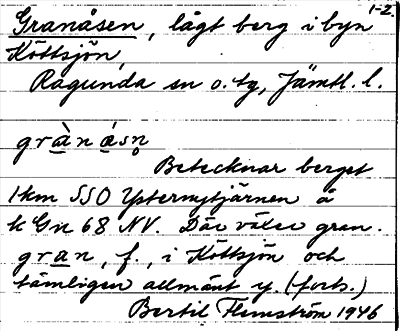 1-2.
Granåsen, lågt berg i byn
Köttsjön,
Ragunda sn o. tg, Jämtl. l.
grà̱n á̱sn̥
Betecknar berget
1 km SSO Ystermytjärnen å
k Gn 68 NV. Där växer gran.
gra̱n, f., i Köttsjön och
tämligen allmänt y. (forts.)
Bertil Flemström 1946